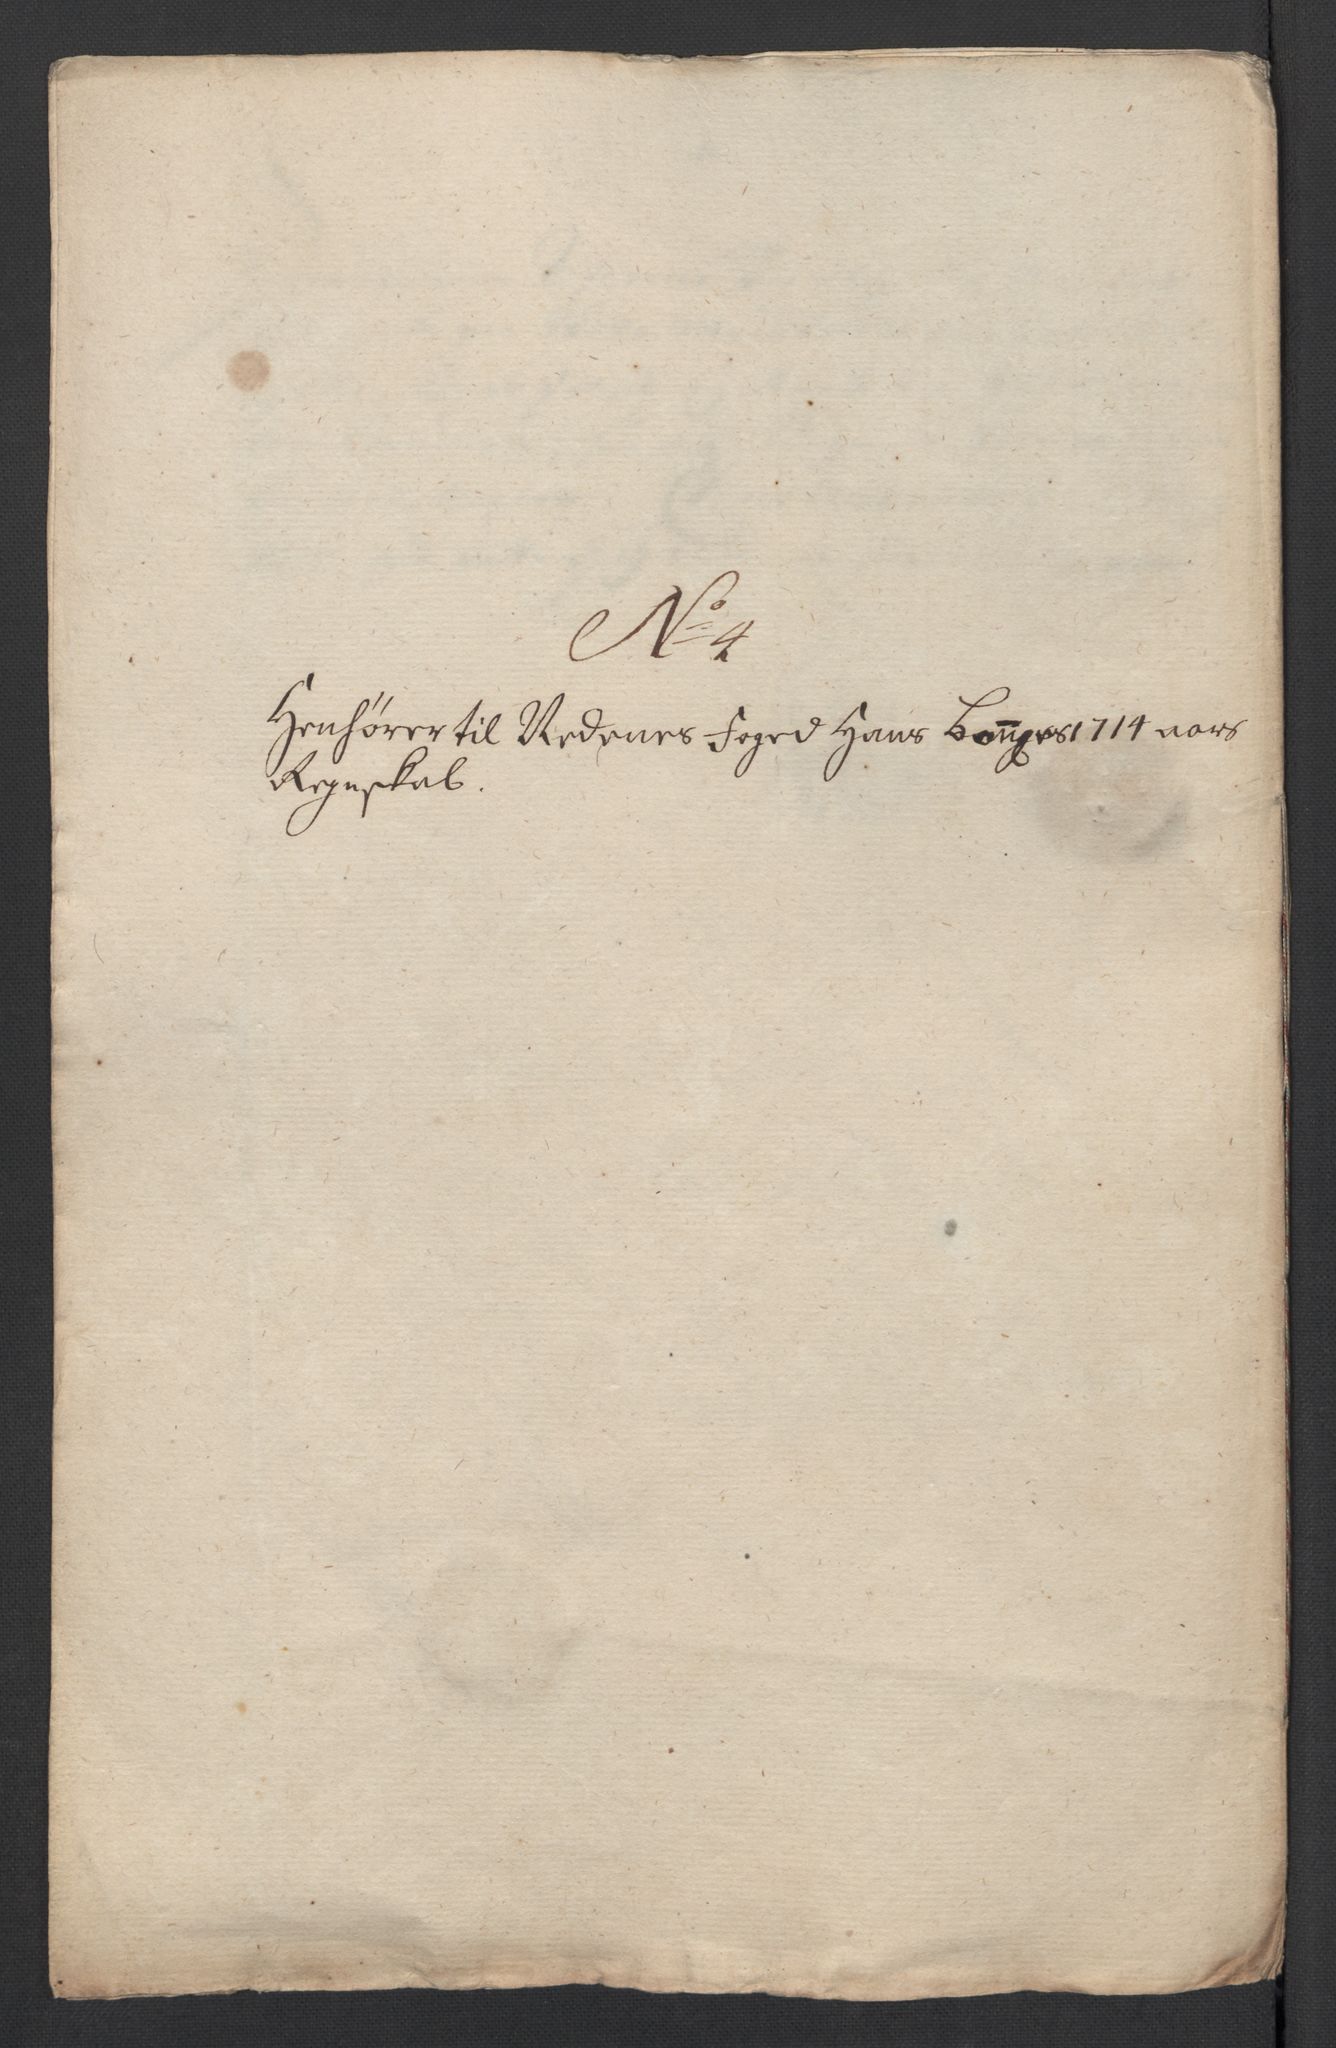 No 4
Henhører til Nedenes Foged Hans Bomps 1714 aars
Regnskab.